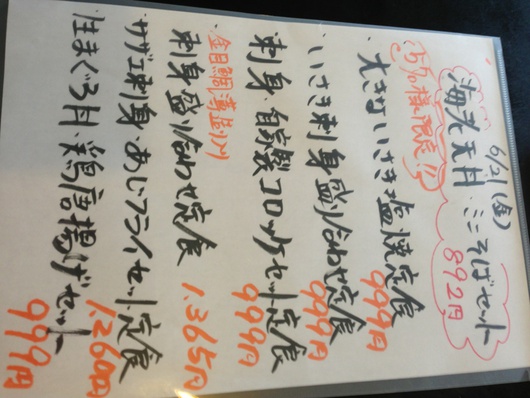 6/21(金)
海老天丼・ミニそばセット
892円
15名様限定!!
・大きないさき塩焼定食 999円
・いさき刺身盛り合わせ定食 999円
・刺身・自家製コロッケセット定食 999円
・金目鯛薄造り入り
刺身盛り合わせ定食 1.365円
・サザエ刺身 あじフライセット定食 1.260円
・生まぐろ丼・鶏唐揚げセット 999円